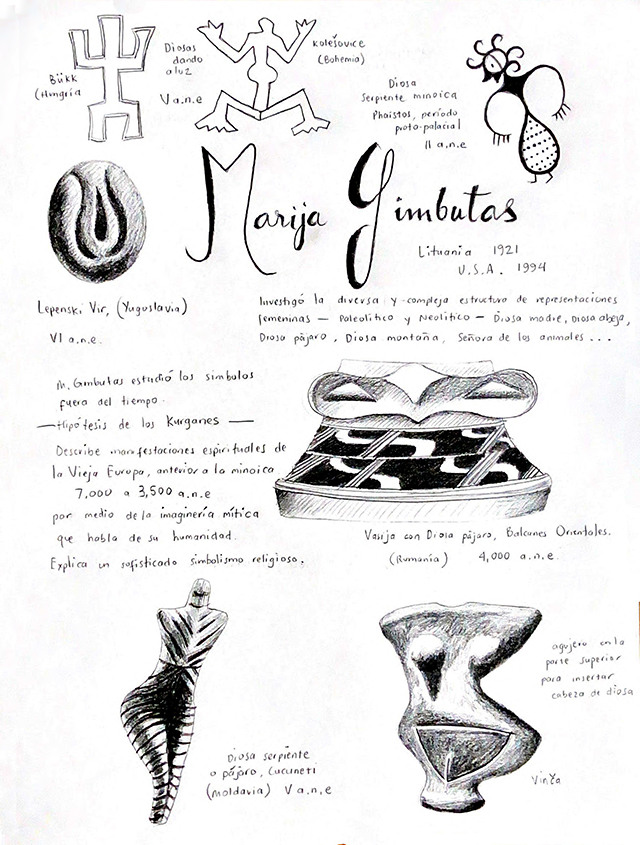 Bükk
(Hungría
Diosas
dando
a luz
V a.n.e
Kolešovice
(Bohemia)
Diosa
serpiente minoica
Phaistos, período
proto-palacial
II a.n.e
Marija Gimbutas
Lituania 1921
U.S.A. 1994
Lepenski Vir, (Yugoslavia)
VI a.n.e.
Investigó la diversa y compleja estructura de representaciones
femeninas — Paleolítico y Neolítico — Diosa madre, Diosa abeja,
Diosa pájaro, Diosa montaña, Señora de los animales ...
M. Gimbutas estudió los símbolos
fuera del tiempo.
— Hipótesis de los Kurganes —
Describe manifestaciones espirituales de
la Vieja Europa, anterior a la minoica
7,000 a 3,500 a.n.e
por medio de la imaginería mítica
que habla de su humanidad.
Explica un sofisticado simbolismo religioso.
Vasija con Diosa pájaro, Balcanes Orientales.
(Rumanía) 4,000 a.n.e.
Diosa serpiente
o pájaro, Cucuneti
(Moldavia) V a.n.e
agujero en la
parte superior
para insertar
cabeza de diosa
Vinča